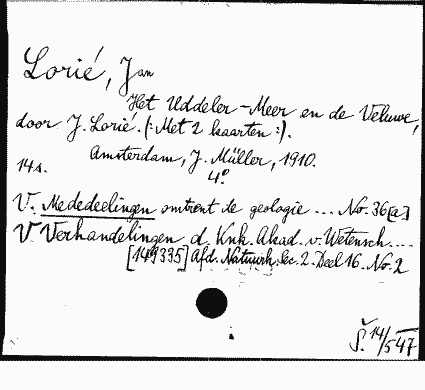 Lorié, Jan
Het Uddeler-Meer en de Veluwe,
door J. Lorié. (: Met 2 kaarten :).
Amsterdam, J. Müller, 1910.
14 s. 4°
V. Mededeelingen omtrent de geologie ... No. 36[a]
V Verhandelingen d. Knk. Akad. v. Wetensch....
[149335] Afd. Natuurk. Sec. 2. Deel 16. No. 2
Š. 14/547